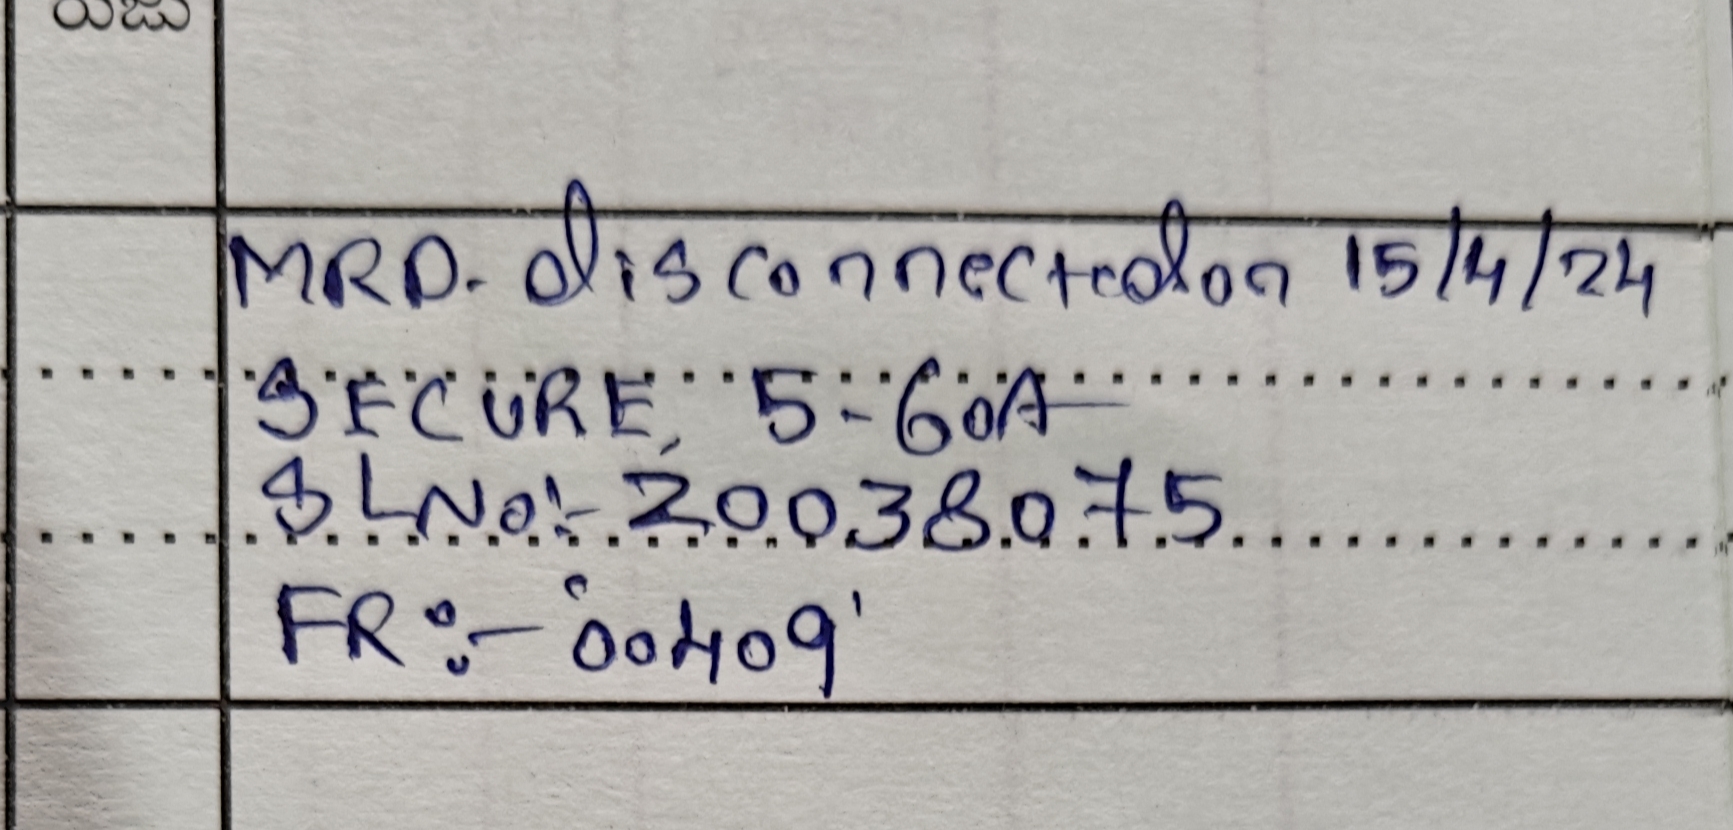 ರುಜು
MRD. disconnected on 15/4/24
SECURE, 5-60A
SLNo:- 20038075
FR:- '00409'